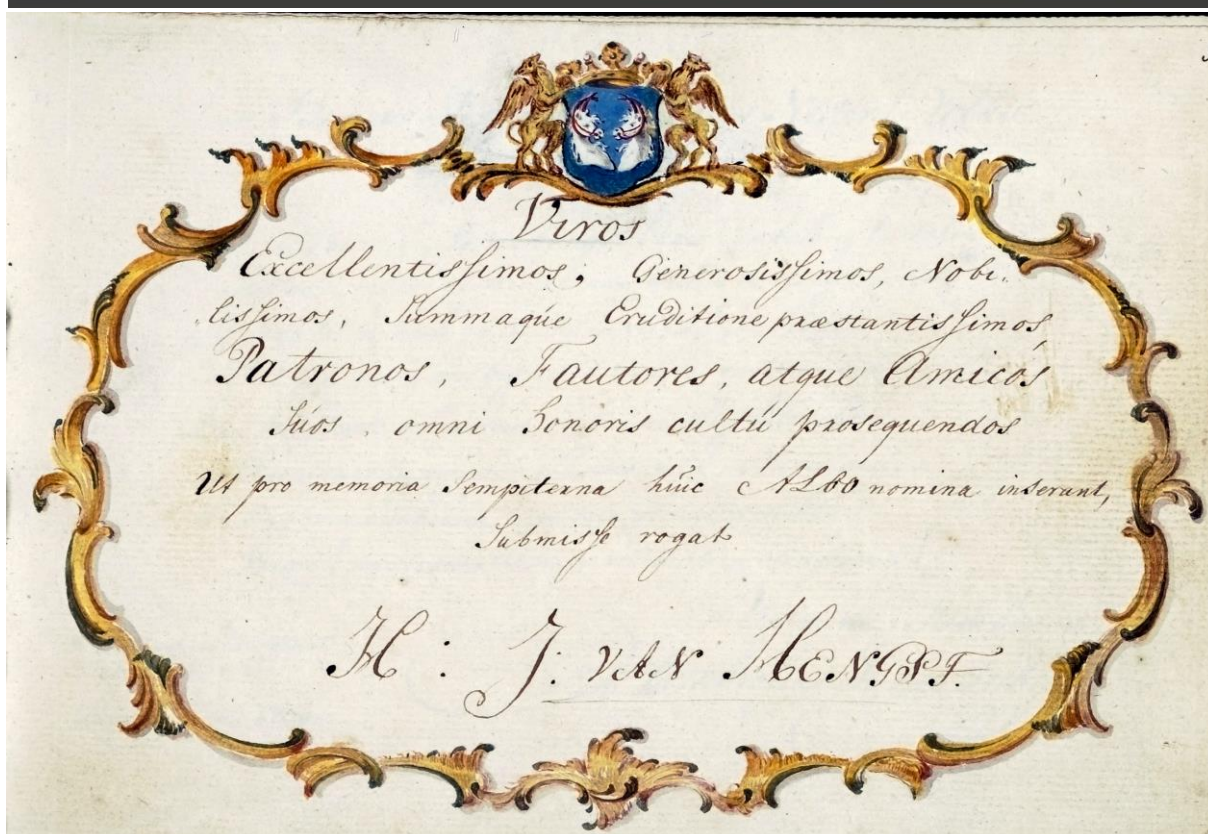 Viros
Excellentissimos; Generosissimos, Nobi-
lissimos, Summaqúe Eruditione præstantissimos,
Patronos, Fautores, atque Amicos
súos, omni honoris cultú prosequendos
Ut pro memoria Sempiterna húic ALBO nomina inserant,
Submisse rogat
H: J: VAN HENGST.